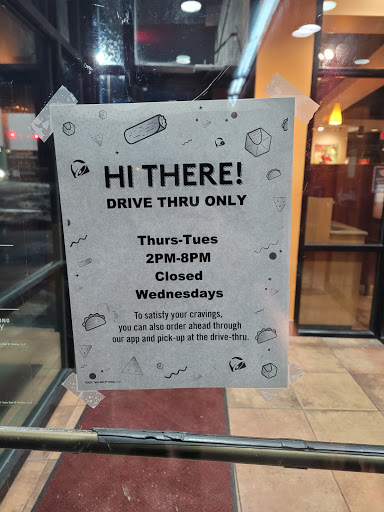 HI THERE!
DRIVE THRU ONLY
Thurs-Tues
2PM-8PM
Closed
Wednesdays
To satisfy your cravings,
you can also order ahead through
our app and pick-up at the drive-thru.